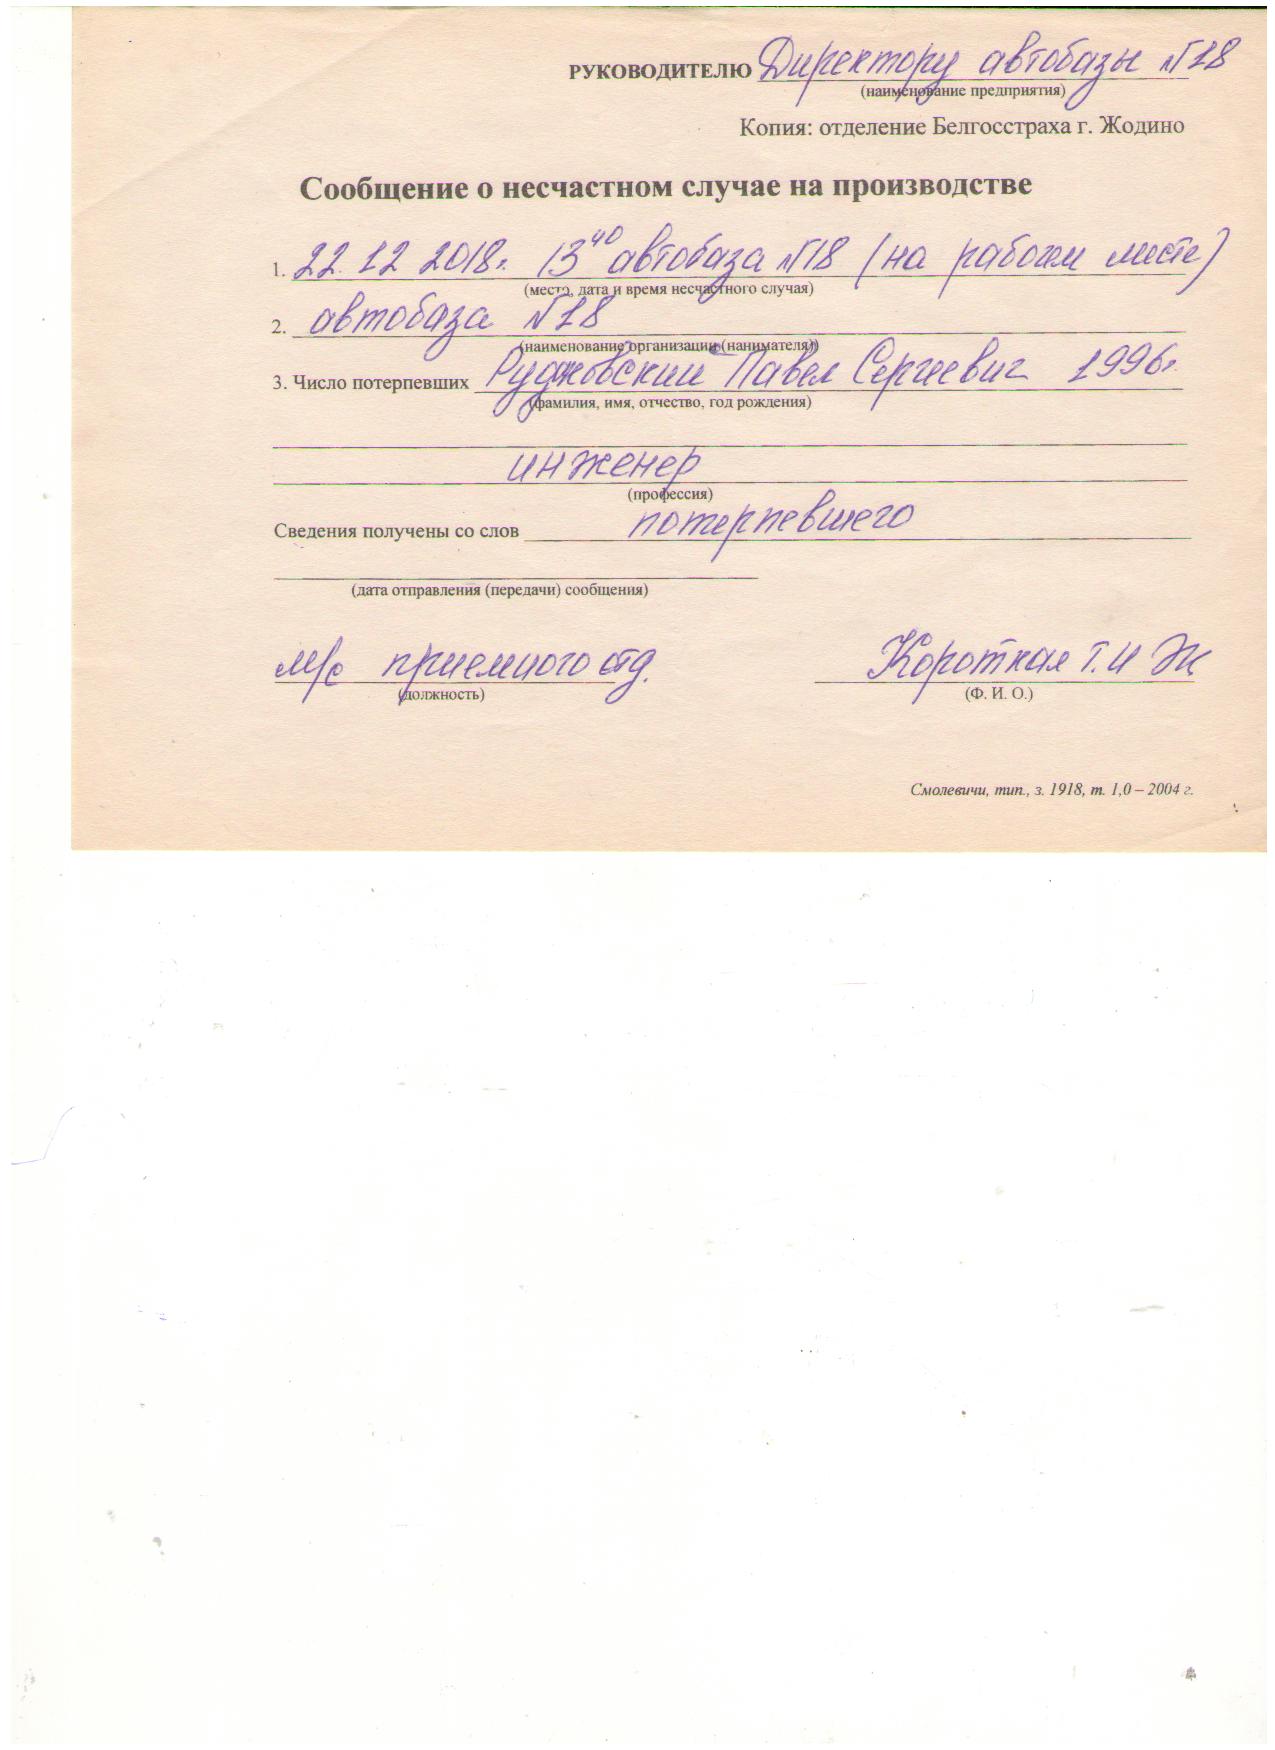 РУКОВОДИТЕЛЮ Директору автобазы №18
(наименование предприятия)
Копия: отделение Белгосстраха г. Жодино
Сообщение о несчастном случае на производстве
1. 22.12 2018г. 13 40 автобаза №18 (на рабочем месте)
(место, дата и время несчастного случая)
2. автобаза №18
(наименование организации (нанимателя))
3. Число потерпевших Павел Сергеевич 1996г.
(фамилия, имя, отчество, год рождения)
инженер
(профессия)
Сведения получены со слов потерпевшего
(дата отправления (передачи) сообщения)
м/с приемного отд. Короткая Т.И
(должность) (Ф. И. О.)
Смолевичи, тип., з. 1918, т. 1,0 – 2004 г.